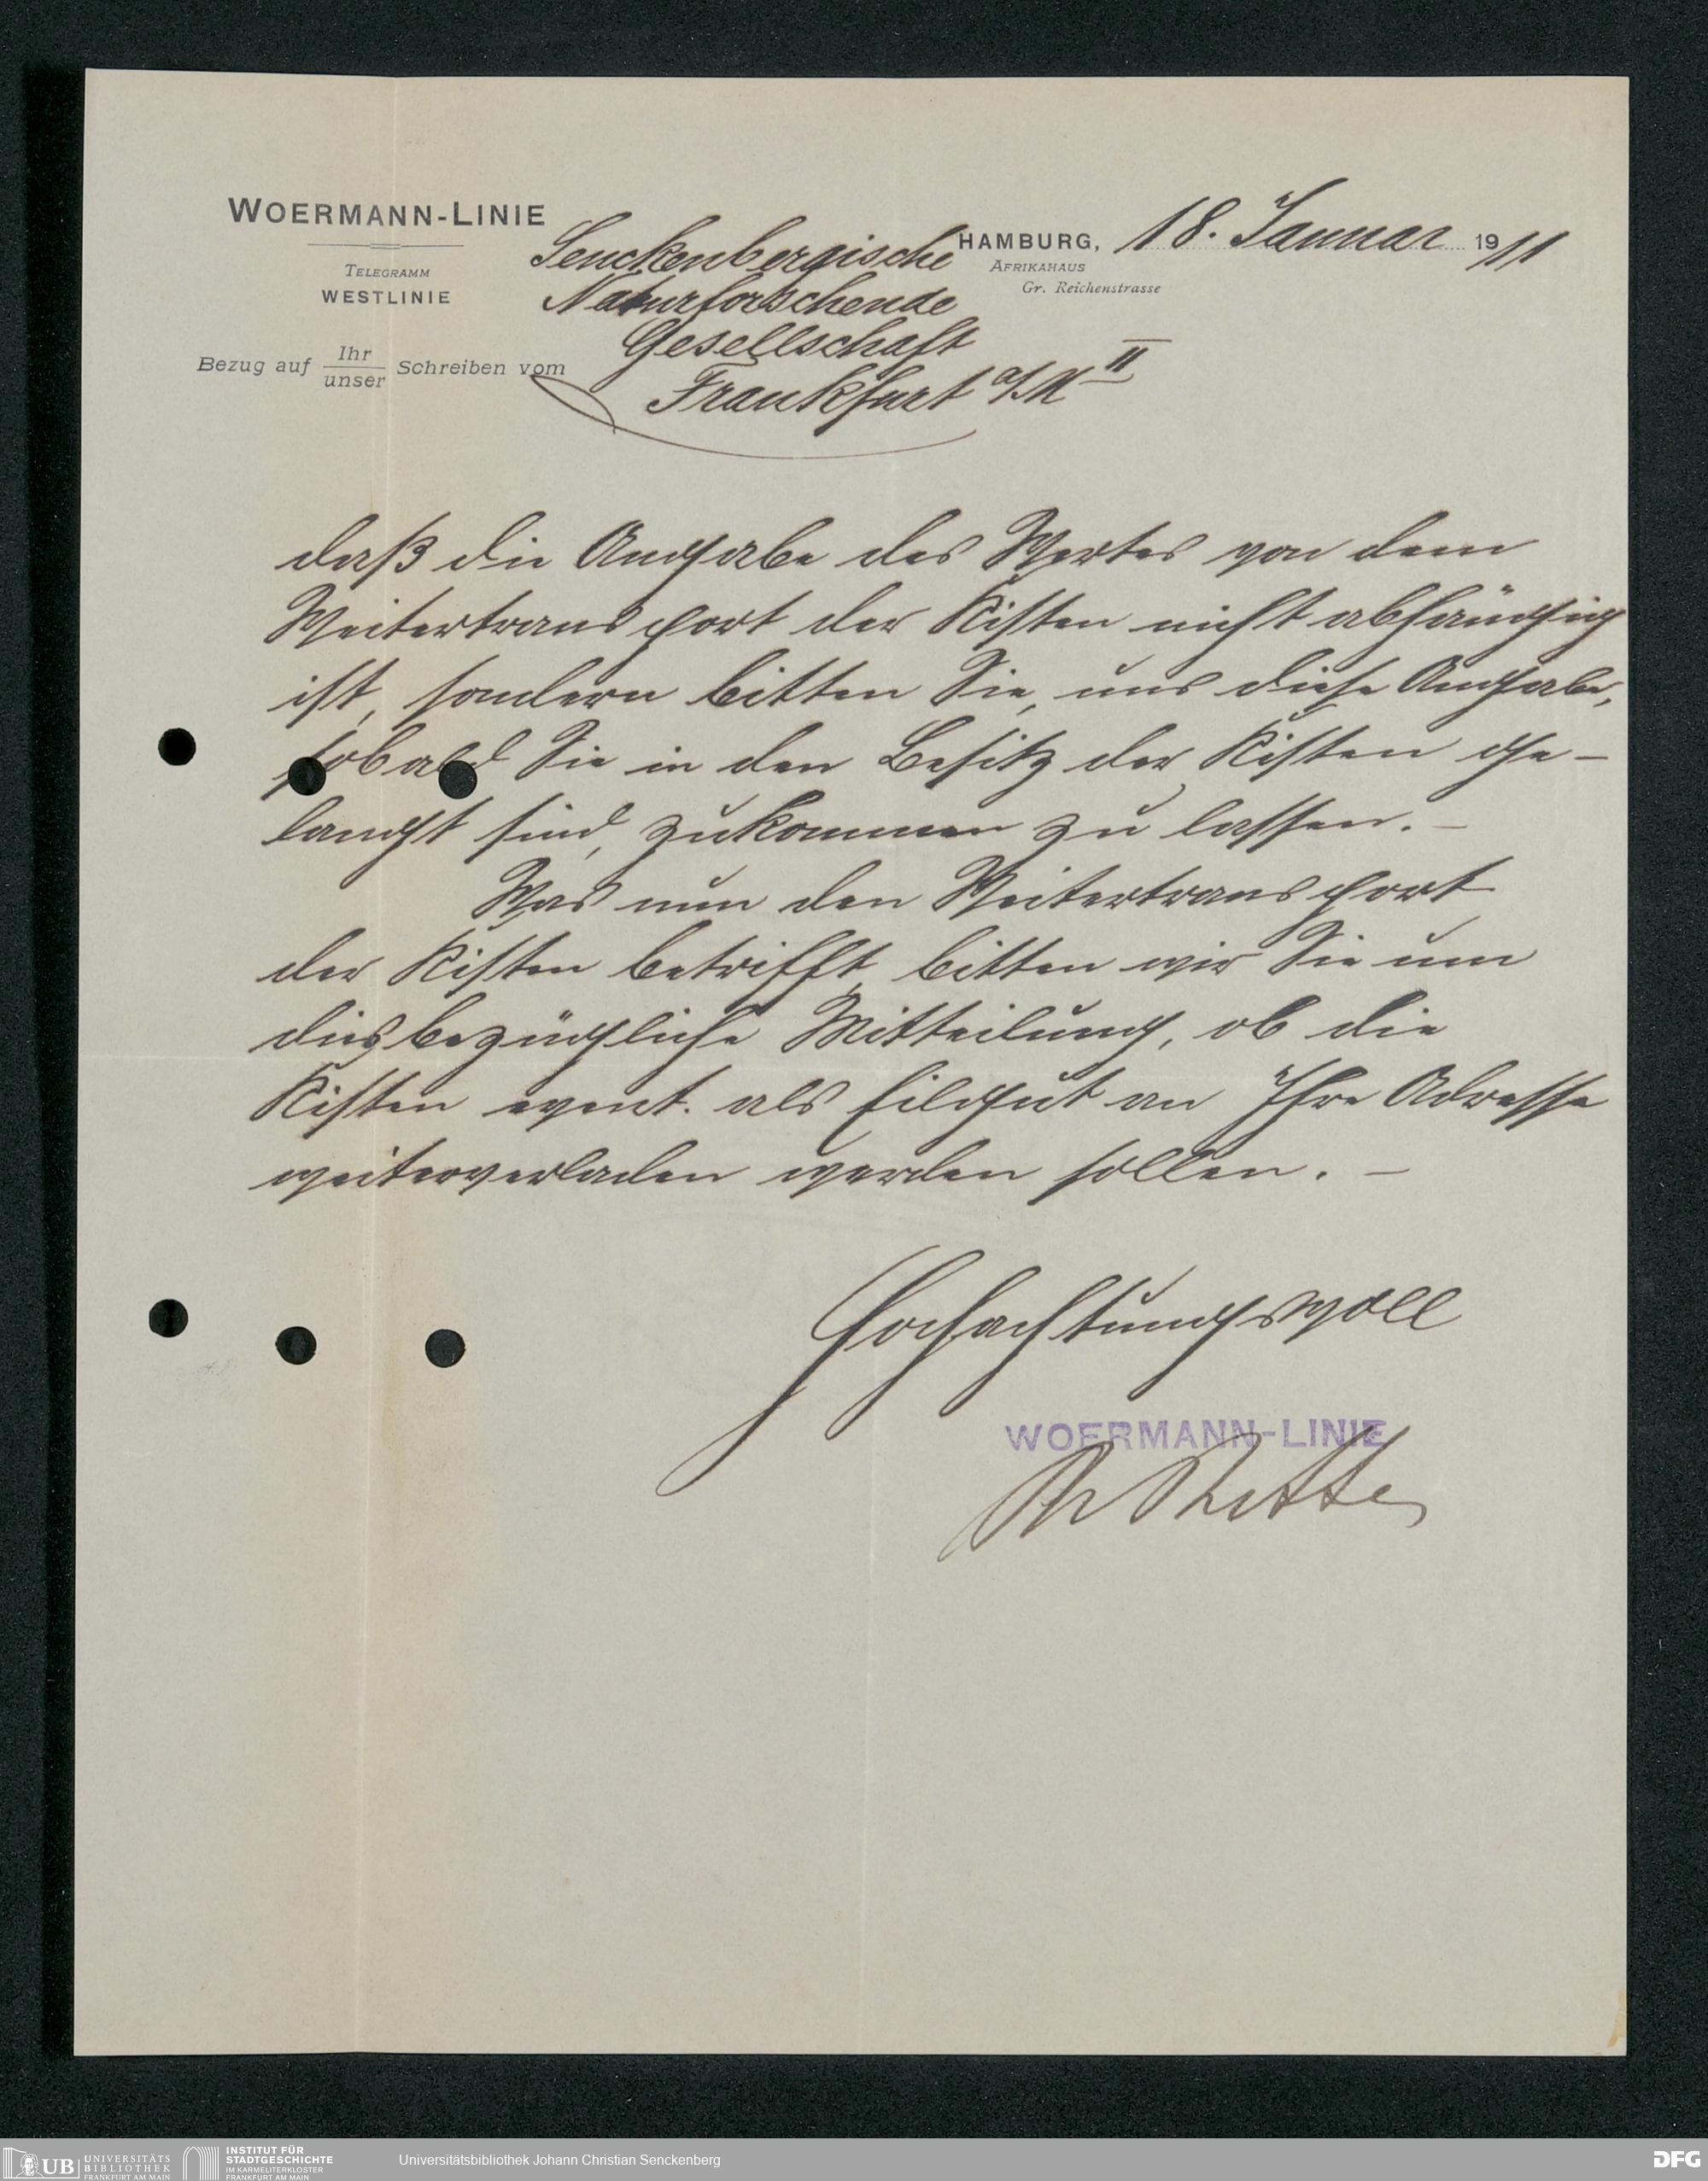 WOERMANN-LINIE
TELEGRAMM
WESTLINIE
Bezug auf Ihr/unser Schreiben vom
HAMBURG, 18. Januar 1911
AFRIKAHAUS
Gr. Reichenstrasse
Senckenbergische
Naturforschende
Gesellschaft
Frankfurt a/M II
daß die Angabe des Wertes von dem
Weitertransport der Kisten nicht abhängig
ist, sondern bitten Sie, uns diese Angabe,
sobald Sie in den Besitz der Kisten ge-
langt sind, zukommen zu lassen. -
Was nun den Weitertransport
der Kisten betrifft, bitten wir Sie um
diesbezügliche Mitteilung, ob die
Kisten event. als Eilgut an Ihre Adresse
weiterverladen werden sollen. -
Hochachtungsvoll
WOERMANN-LINIE
UB UNIVERSITÄTS
BIBLIOTHEK
FRANKFURT AM MAIN
INSTITUT FÜR
STADTGESCHICHTE
IM KARMELITERKLOSTER
FRANKFURT AM MAIN
Universitätsbibliothek Johann Christian Senckenberg
DFG